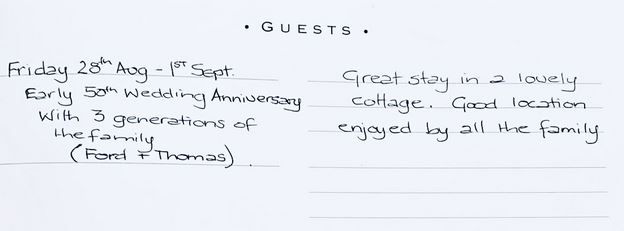 • GUESTS •
Friday 28th Aug - 1ST Sept.
Early 50th Wedding Anniversary
With 3 generations of
the family
(Ford + Thomas).
Great stay in a lovely
cottage. Good location
enjoyed by all the family